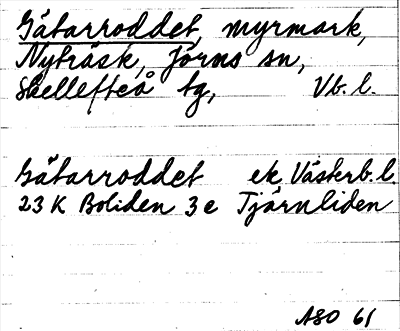 Gåtarroddet, myrmark,
Nyträsk, Jörns sn,
Skellefteå tg, Vb. l.
Gåtarroddet ek. Västerb. l.
23 K Boliden 3 e Tjärnliden
ASO 61